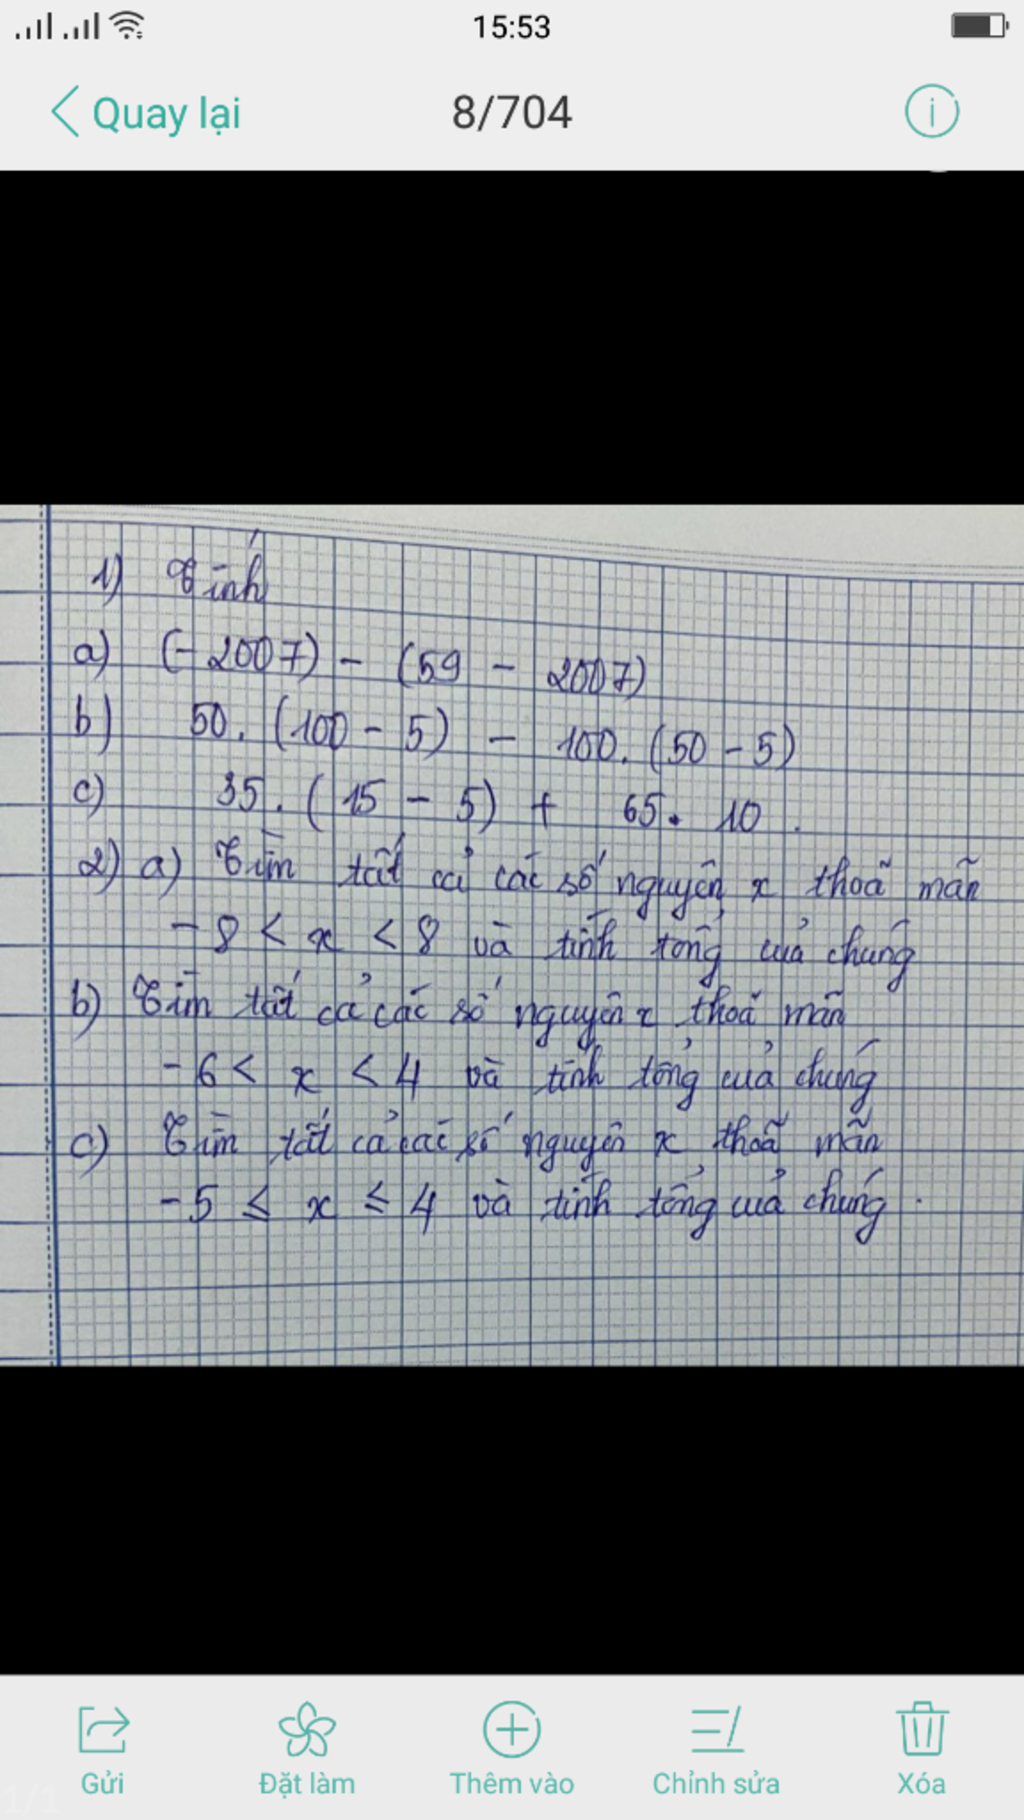 15:53
Quay lại 8/704
1) Tính
a) (-2007) - (59 - 2007)
b) 50. (100 - 5) - 100. (50 - 5)
c) 35. (15 - 5) + 65. 10.
2) a) Tìm tất cả các số nguyên x thoã mãn
-8 < x < 8 và tính tổng của chúng
b) Tìm tất cả các số nguyên x thoã mãn
-6 < x < 4 và tính tổng của chúng
c) Tìm tất cả các số nguyên x thoã mãn
-5 ≤ x ≤ 4 và tính tổng của chúng.
Gửi Đặt làm Thêm vào Chỉnh sửa Xóa
1/1